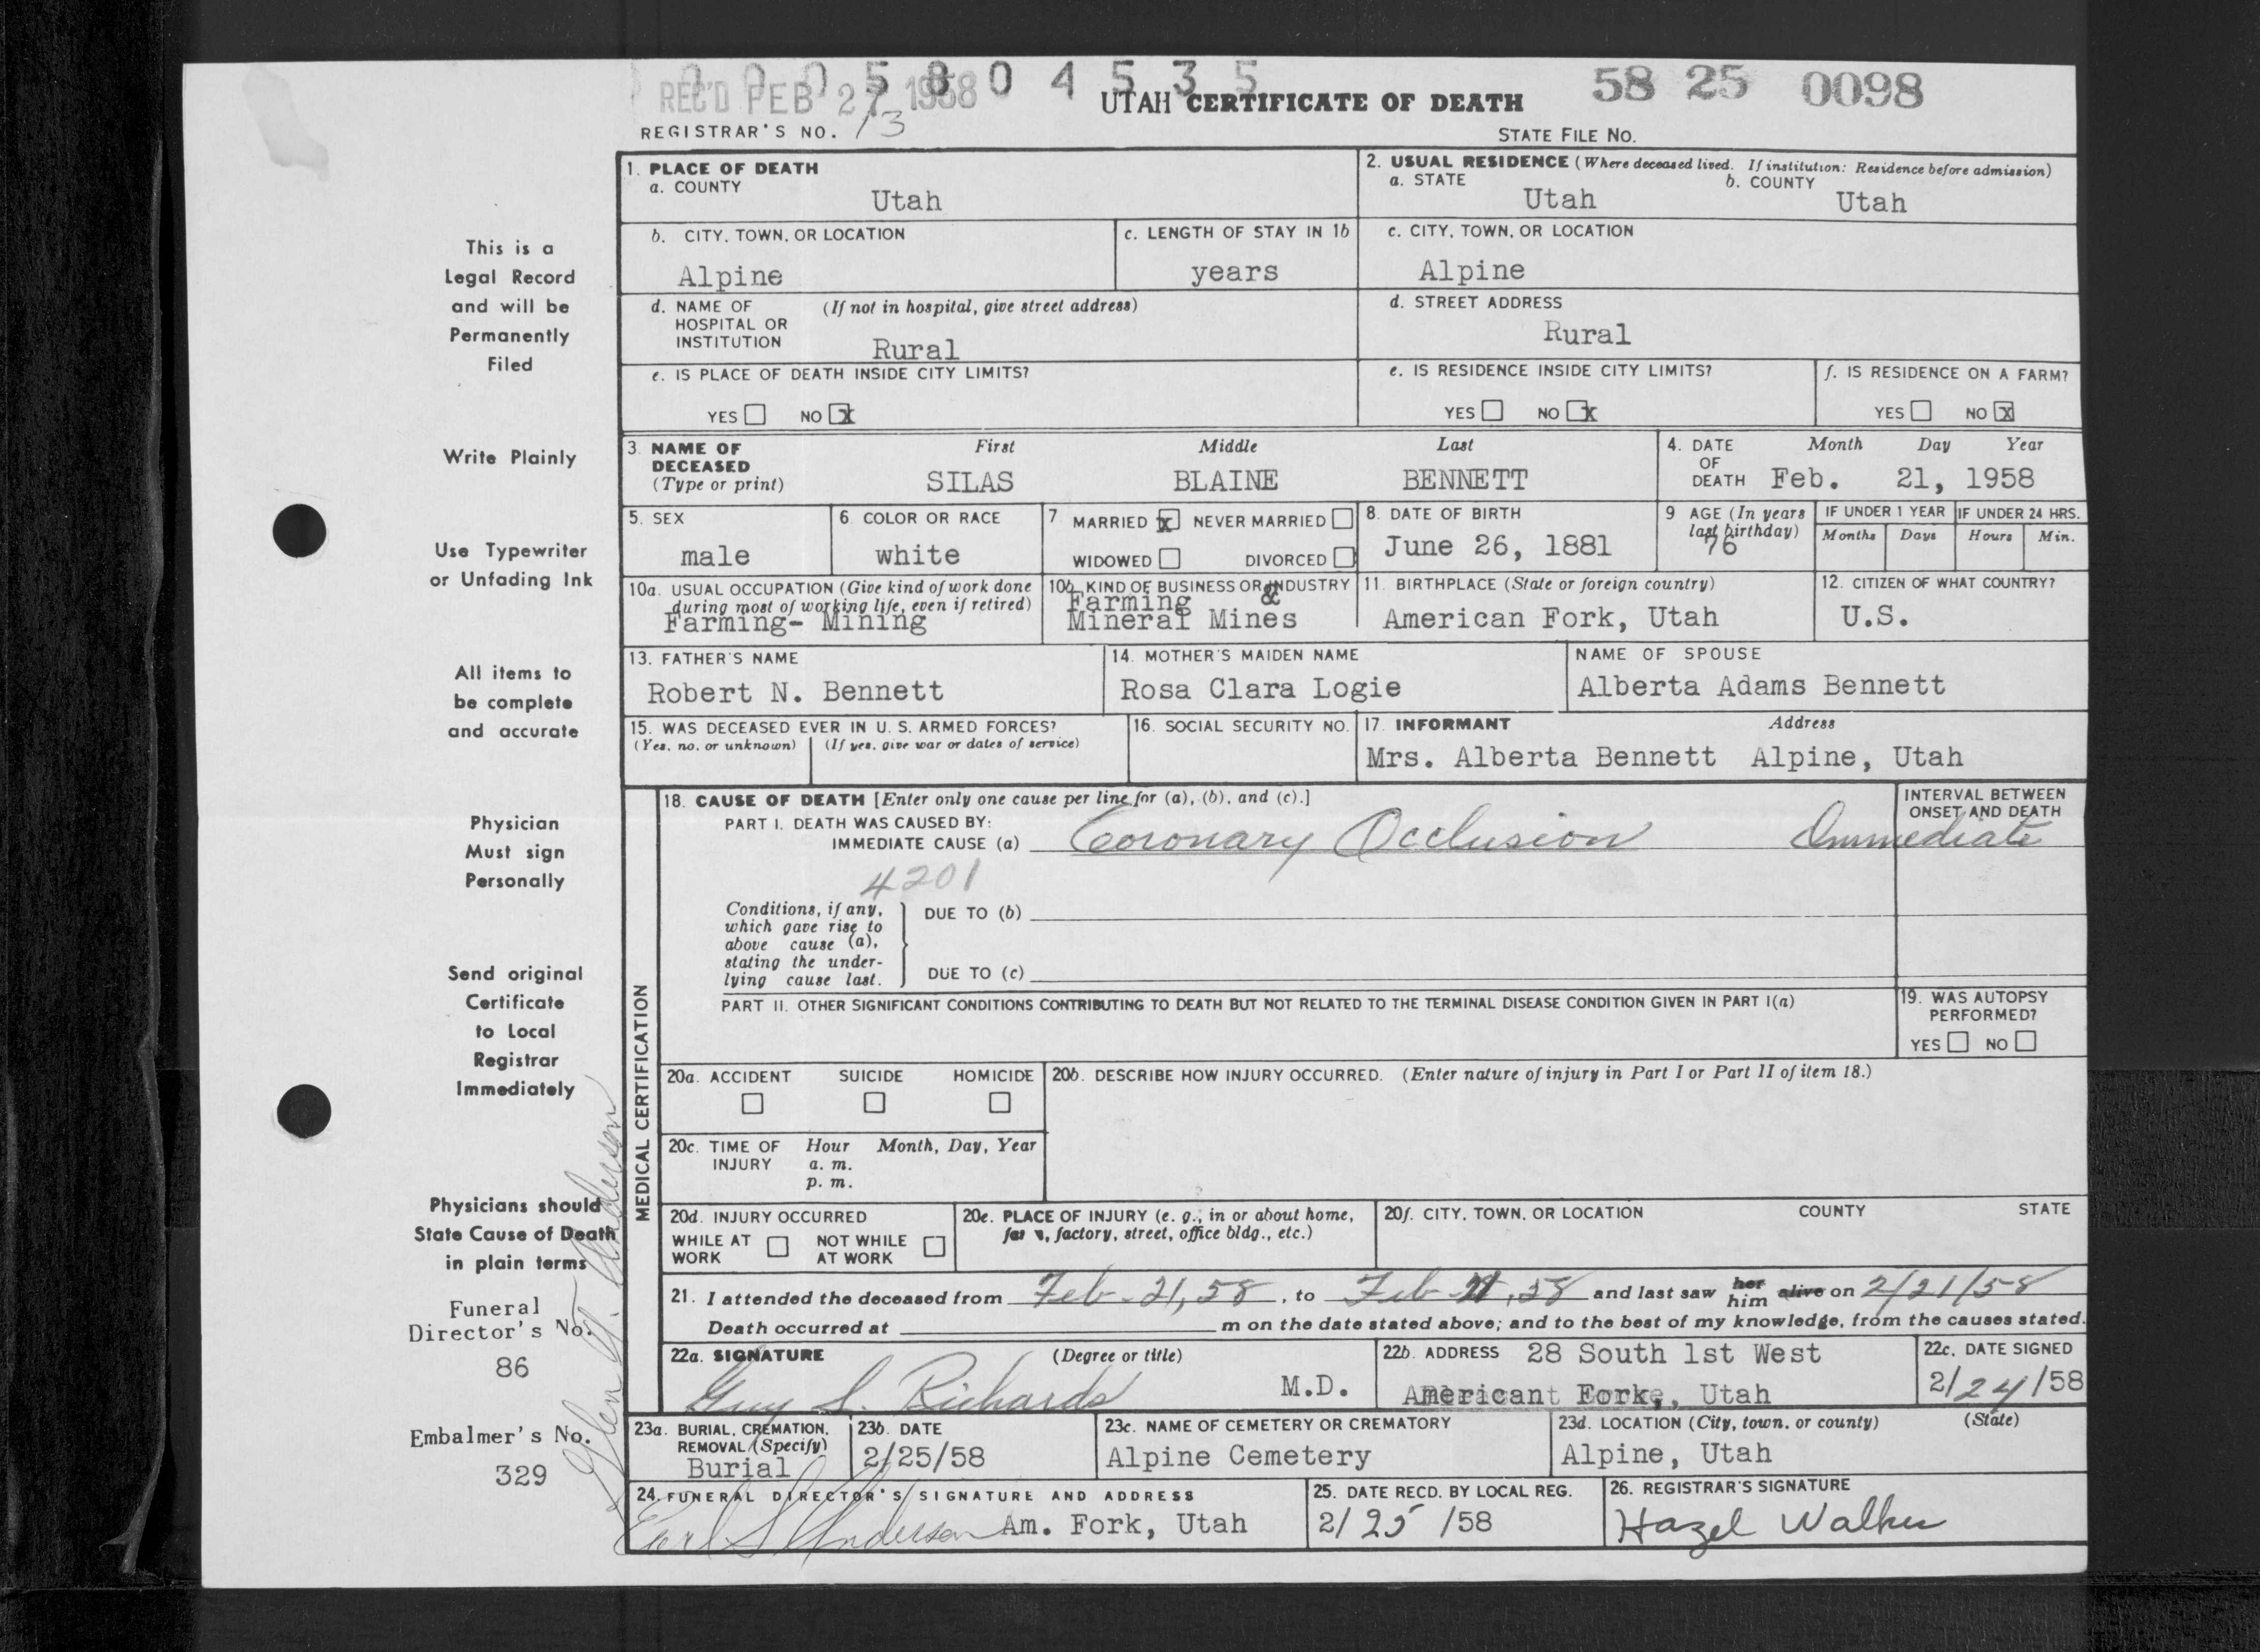 0005804535
REC'D FEB 27 1958
UTAH CERTIFICATE OF DEATH
58 25 0098
REGISTRAR'S NO. 13
STATE FILE NO.
This is a
Legal Record
and will be
Permanently
Filed
Write Plainly
Use Typewriter
or Unfading Ink
All items to
be complete
and accurate
Physician
Must sign
Personally
Send original
Certificate
to Local
Registrar
Immediately
Physicians should
State Cause of Death
in plain terms
Funeral
Director's No.
86
Embalmer's No.
329
Anderson
1. PLACE OF DEATH
a. COUNTY
Utah
2. USUAL RESIDENCE (Where deceased lived. If institution: Residence before admission)
a. STATE
Utah
b. COUNTY
Utah
b. CITY, TOWN, OR LOCATION
Alpine
c. LENGTH OF STAY IN 1b
years
c. CITY, TOWN, OR LOCATION
Alpine
d. NAME OF (If not in hospital, give street address)
HOSPITAL OR
INSTITUTION
Rural
d. STREET ADDRESS
Rural
e. IS PLACE OF DEATH INSIDE CITY LIMITS?
YES NO X
e. IS RESIDENCE INSIDE CITY LIMITS?
YES NO X
f. IS RESIDENCE ON A FARM?
YES NO X
3. NAME OF DECEASED
(Type or print)
First Middle Last
SILAS BLAINE BENNETT
4. DATE OF DEATH
Month Day Year
Feb. 21, 1958
5. SEX
male
6. COLOR OR RACE
white
7. MARRIED X NEVER MARRIED
WIDOWED DIVORCED
8. DATE OF BIRTH
June 26, 1881
9 AGE (In years
last birthday)
76
IF UNDER 1 YEAR
Months Days
IF UNDER 24 HRS.
Hours Min.
10a. USUAL OCCUPATION (Give kind of work done
during most of working life, even if retired)
Farming- Mining
10b. KIND OF BUSINESS OR INDUSTRY
Farming &
Mineral Mines
11. BIRTHPLACE (State or foreign country)
American Fork, Utah
12. CITIZEN OF WHAT COUNTRY?
U.S.
13. FATHER'S NAME
Robert N. Bennett
14. MOTHER'S MAIDEN NAME
Rosa Clara Logie
NAME OF SPOUSE
Alberta Adams Bennett
15. WAS DECEASED EVER IN U. S. ARMED FORCES?
(Yes, no, or unknown) (If yes, give war or dates of service)
16. SOCIAL SECURITY NO.
17. INFORMANT Address
Mrs. Alberta Bennett Alpine, Utah
MEDICAL CERTIFICATION
18. CAUSE OF DEATH [Enter only one cause per line for (a), (b), and (c).]
PART I. DEATH WAS CAUSED BY:
IMMEDIATE CAUSE (a) Coronary Occlusion
INTERVAL BETWEEN
ONSET AND DEATH
Immediate
4201
Conditions, if any,
which gave rise to
above cause (a),
stating the under-
lying cause last.
DUE TO (b)
DUE TO (c)
PART II. OTHER SIGNIFICANT CONDITIONS CONTRIBUTING TO DEATH BUT NOT RELATED TO THE TERMINAL DISEASE CONDITION GIVEN IN PART I(a)
19. WAS AUTOPSY
PERFORMED?
YES NO
20a. ACCIDENT SUICIDE HOMICIDE
20b. DESCRIBE HOW INJURY OCCURRED. (Enter nature of injury in Part I or Part II of item 18.)
20c. TIME OF INJURY
Hour Month, Day, Year
a. m.
p. m.
20d. INJURY OCCURRED
WHILE AT WORK
NOT WHILE AT WORK
20e. PLACE OF INJURY (e. g., in or about home,
factory, street, office bldg., etc.)
20f. CITY, TOWN, OR LOCATION COUNTY STATE
21. I attended the deceased from Feb-21,58, to Feb-21,58 and last saw her him alive on 2/21/58
Death occurred at m on the date stated above; and to the best of my knowledge, from the causes stated.
22a. SIGNATURE (Degree or title)
Guy S. Richards M.D.
22b. ADDRESS 28 South 1st West
American Fork, Utah
22c. DATE SIGNED
2/24/58
23a. BURIAL, CREMATION,
REMOVAL (Specify)
Burial
23b. DATE
2/25/58
23c. NAME OF CEMETERY OR CREMATORY
Alpine Cemetery
23d. LOCATION (City, town, or county) (State)
Alpine, Utah
24. FUNERAL DIRECTOR'S SIGNATURE AND ADDRESS
Earl S Anderson Am. Fork, Utah
25. DATE RECD. BY LOCAL REG.
2/25/58
26. REGISTRAR'S SIGNATURE
Hazel Walker